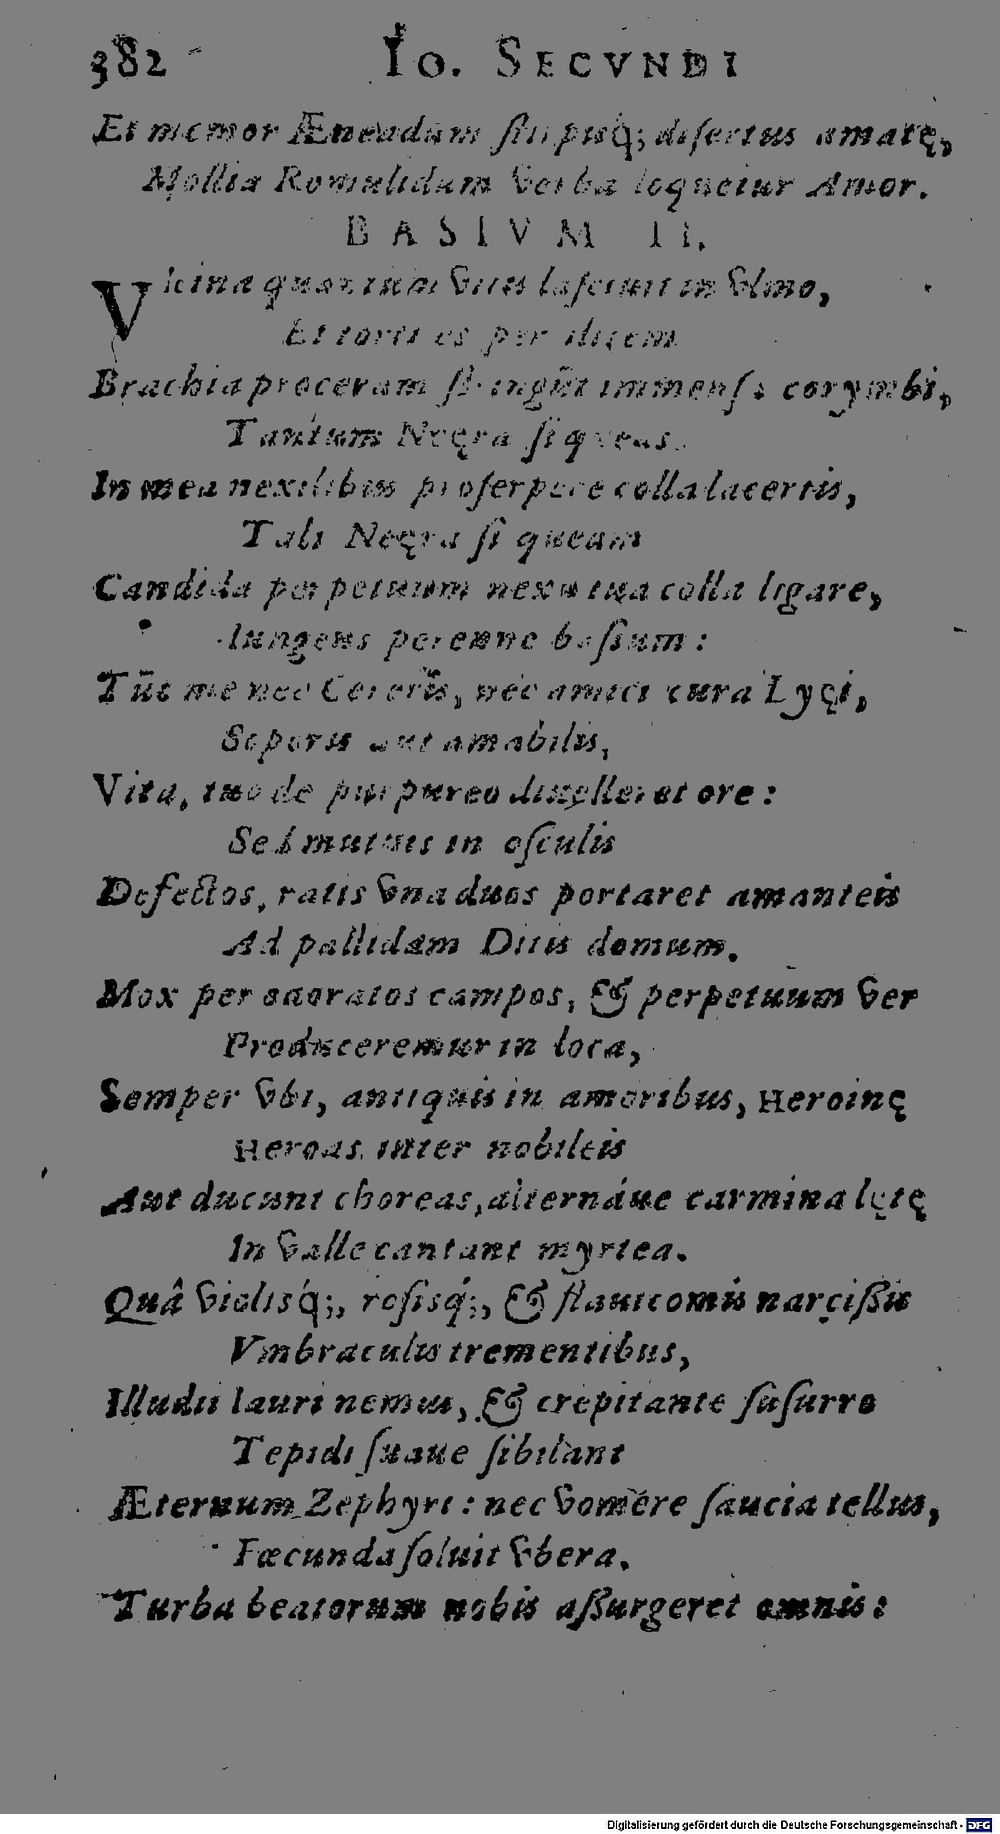 382 Io. SECVNDI
Et memor Æneadûm stirpisq́; disertus amatę,
Mollia Romulidum verba loquetur Amor.
BASIVM II.
Vicina quantum vitis lasciuit in vlmo,
Et tortiles per ilicem
Brachia proceram stringũt immensi corymbi,
Tantum Neęra si queas
In mea nexilibus proserpere colla lacertis,
Tali Neęra si queam
Candida perpetuum nexu tua colla ligare,
Iungens perenne basium:
Tũc me nec Cereris, nec amici cura Lyęi,
Soporis aut amabilis,
Vita, tuo de purpureo diuelleret ore:
Sed mutuis in osculis
Defectos, ratis vna duos portaret amanteis
Ad pallidam Ditis domum.
Mox per odoratos campos, & perpetuum ver
Produceremur in loca,
Semper vbi, antiquis in amoribus, Heroinę
Heroas inter nobileis
Aut ducunt choreas, alternáue carmina lętę
In valle cantant myrtea.
Quâ violisq́;, rosisq́;, & flauicomis narcissis
Vmbraculis trementibus,
Illudit lauri nemus, & crepitante susurro
Tepidi suaue sibilant
Æternum Zephyri: nec vomere saucia tellus,
Fœcunda soluit vbera.
Turba beatorum nobis assurgeret omnis:
Digitalisierung gefördert durch die Deutsche Forschungsgemeinschaft - DFG